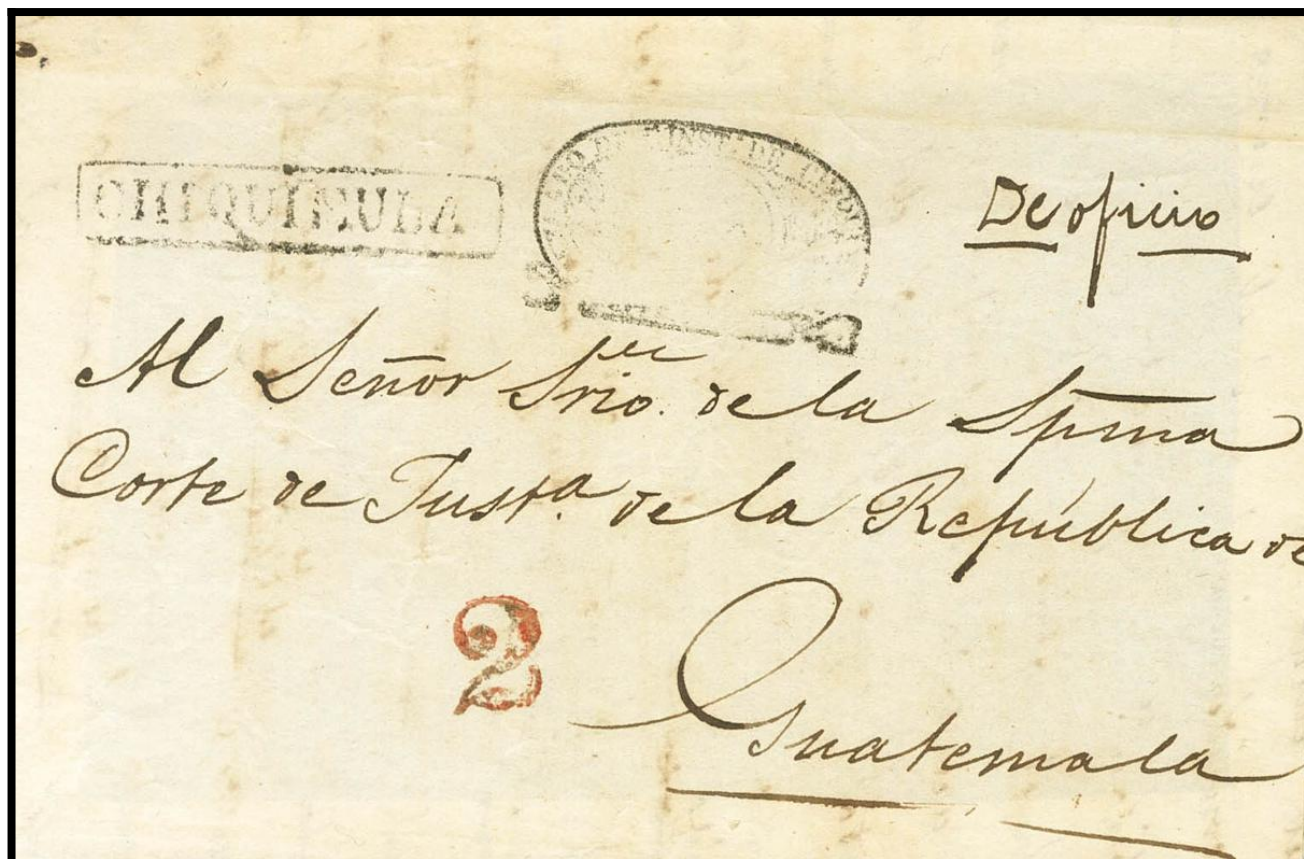 CHIQUIMULA
De oficio
Al Señor Srio. de la Spma
Corte de Justª. de la República de
2
Guatemala